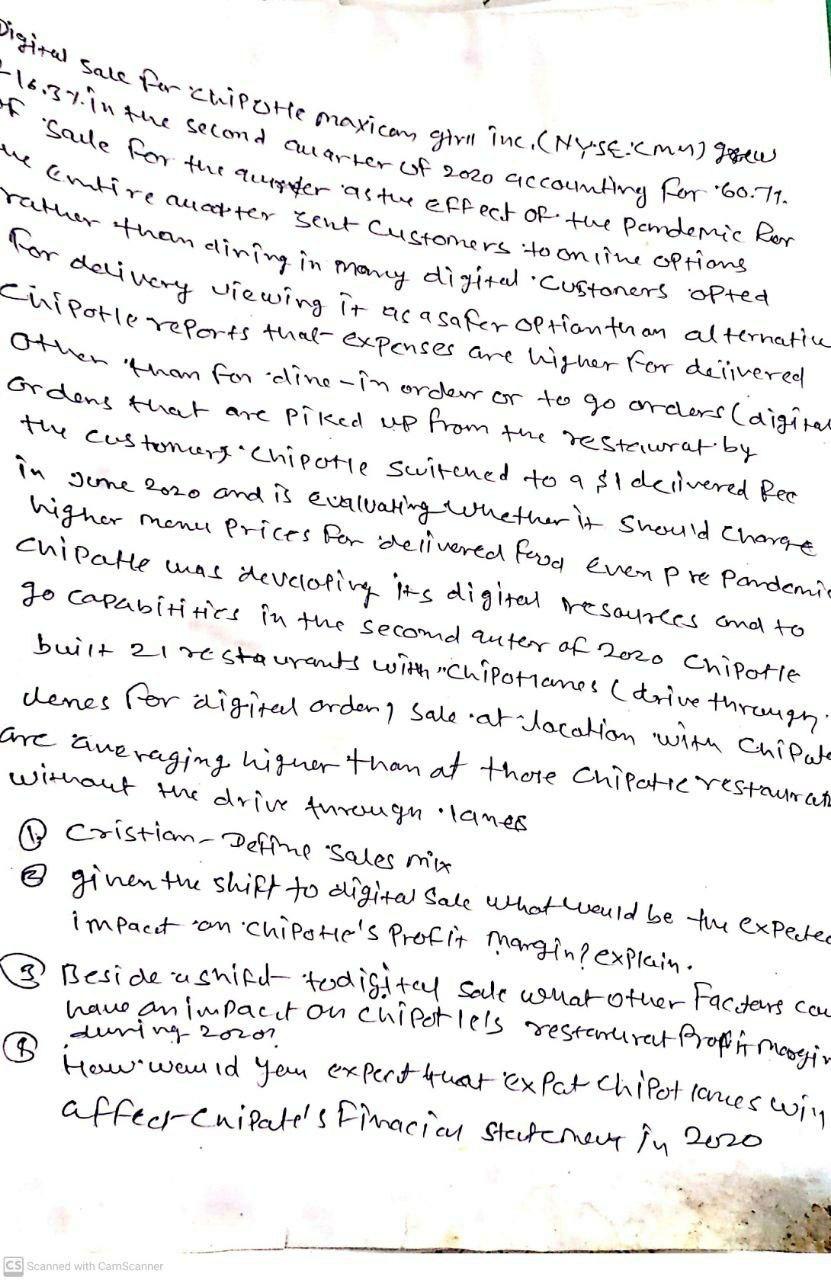 Digital Sale for chipotle maxican grill inc. (NYSE: CMG) grew
216.3%. in the second quarter of 2020 accounting for 60.7%.
of Sale for the quarter as the effect of the pandemic for
the entire quarter sent customers to online options
rather than dining in many digital Customers opted
for delivery viewing it as a safer option than alternative
Chipotle reports that expenses are higher for delivered
other than for dine-in order or to go orders (digital
orders that are piked up from the restaurat by
the customers. Chipotle switched to a $1 delivered fee
in june 2020 and is evaluating whether it should charge
higher menu prices for delivered food even pre pandemic
chipotle was developing its digital resources and to
go capabitities in the second quter of 2020 Chipotle
built 21 restaurants with "Chipotlanes (drive through
lenes for digital order) sale at location with Chipotle
are averaging higher than at those chipotle restaurat
without the drive through lanes
① Cristian - Define Sales mix
② given the shift to digital sale what would be the expected
impact on chipotle's Profit margin? explain.
③ Beside a shift to digital sale what other factors cou
have an impact on chipotle's restaurat Profit margin
during 2020?
④ How would you expect that expat chipot lanes will
affect Chipotle's Finacial statement in 2020
CS Scanned with CamScanner